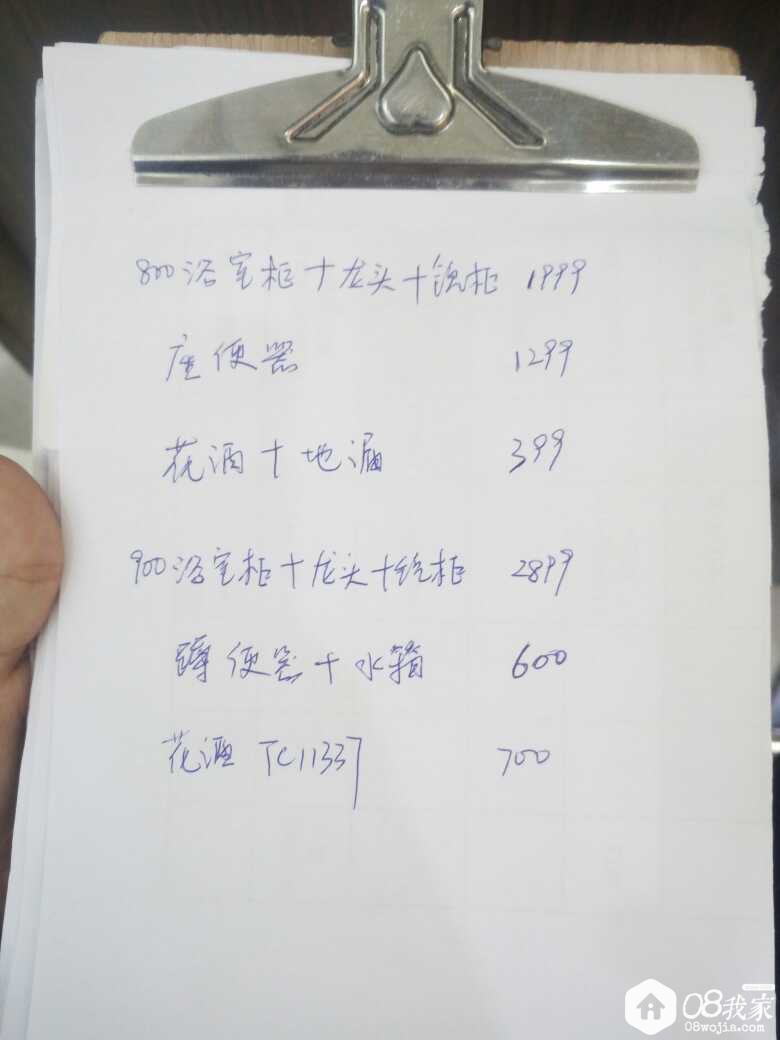 800浴室柜+龙头+镜柜 1999
座便器 1299
花洒+地漏 399
900浴室柜+龙头+镜柜 2899
蹲便器+水箱 600
花洒 TC11337 700
08我家
08wojia.com